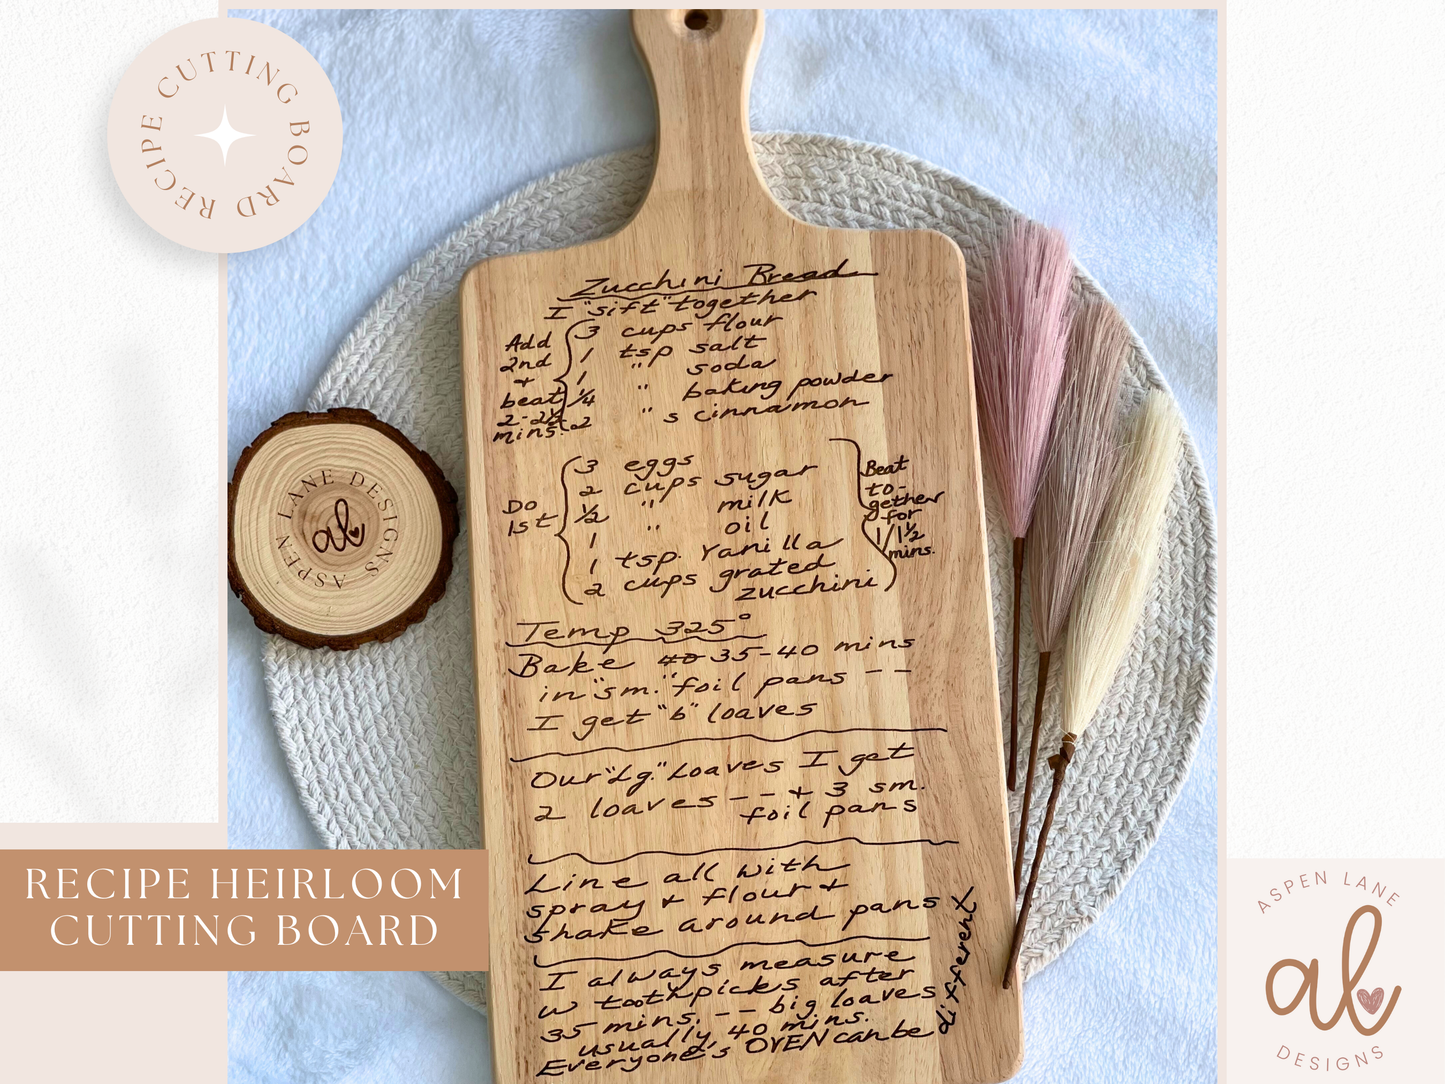 RECIPE CUTTING BOARD
Zucchini Bread
I "sift" together
Add 2nd + beat 2-2½ mins.
3 cups flour
1 tsp salt
1 " soda
¼ " baking powder
2 " s cinnamon
Do 1st
3 eggs
2 cups sugar
½ " milk
1 " oil
1 tsp. Vanilla
2 cups grated
zucchini
Beat
to-
gether
for
1/1½
mins.
Temp 325°
Bake 40 35-40 mins
in "sm." foil pans --
I get "6" loaves
Our "Lg." Loaves I get
2 loaves -- + 3 sm.
foil pans
Line all with
spray + flour +
shake around pans
I always measure
w toothpicks after
35 mins. -- big loaves
usually, 40 mins.
Everyone's OVEN can be different
ASPEN LANE DESIGNS
al
RECIPE HEIRLOOM
CUTTING BOARD
ASPEN LANE
al
DESIGNS